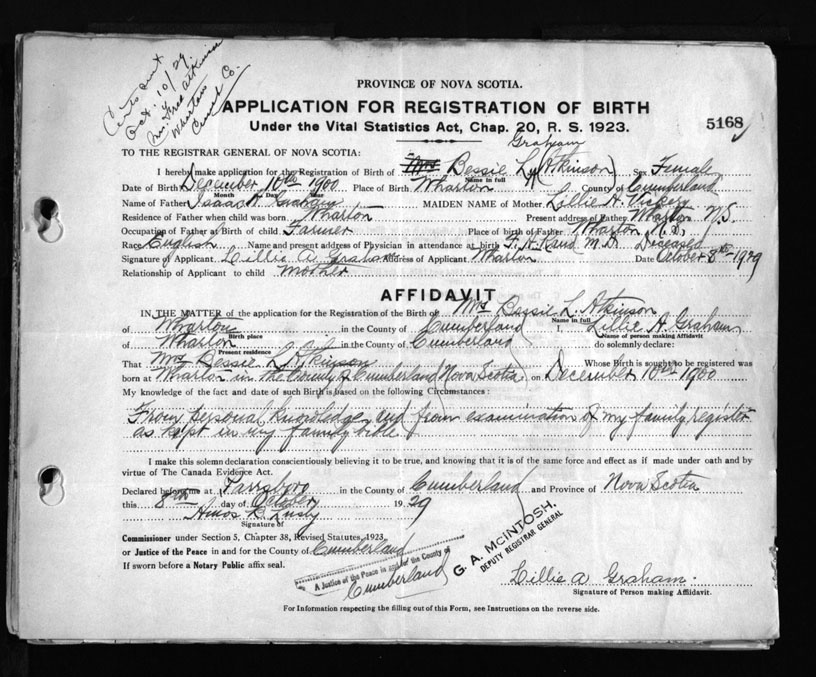 Cert. sent
Oct. 10/29
Mrs. Fred Atkinson
Wharton
Cumb. Co.
PROVINCE OF NOVA SCOTIA.
APPLICATION FOR REGISTRATION OF BIRTH
5168
Under the Vital Statistics Act, Chap. 20, R. S. 1923.
Graham
TO THE REGISTRAR GENERAL OF NOVA SCOTIA:
I hereby make application for the Registration of Birth of Mrs Bessie L. (Atkinson) Sex Female
Name in full
Date of Birth December 10th 1900 Place of Birth Wharton County of Cumberland
Month Day Year
Name of Father Isaac H. Graham MAIDEN NAME of Mother Lillie A. Vickery
Residence of Father when child was born Wharton Present address of Father Wharton N.S.
Occupation of Father at Birth of child Farmer Place of birth of Father Wharton N.S.
Race English Name and present address of Physician in attendance at birth F. A. Rand M.D. Deceased
Signature of Applicant Lillie A. Graham Address of Applicant Wharton Date October 8th 1929
Relationship of Applicant to child Mother
AFFIDAVIT
IN THE MATTER of the application for the Registration of the Birth of Mrs Bessie L. Atkinson
Name in full
of Wharton in the County of Cumberland I Lillie A. Graham
Birth place Name of person making Affidavit
of Wharton in the County of Cumberland do solemnly declare:
Present residence
That Mrs Bessie L. Atkinson Whose Birth is sought to be registered was
born at Wharton in the County of Cumberland Nova Scotia on December 10th 1900
My knowledge of the fact and date of such Birth is based on the following Circumstances:
From personal knowledge and from examination of my family register
as kept in my family bible
I make this solemn declaration conscientiously believing it to be true, and knowing that it is of the same force and effect as if made under oath and by
virtue of The Canada Evidence Act.
Declared before me at Parrsboro in the County of Cumberland and Province of Nova Scotia
this 8th day of October 1929
Amos K. Lusby
Signature of
Commissioner under Section 5, Chapter 38, Revised Statutes, 1923,
or Justice of the Peace in and for the County of Cumberland
If sworn before a Notary Public affix seal.
A Justice of the Peace in and for the County of
Cumberland
G. A. McINTOSH,
DEPUTY REGISTRAR GENERAL
Lillie A Graham.
Signature of Person making Affidavit.
For Information respecting the filling out of this Form, see Instructions on the reverse side.